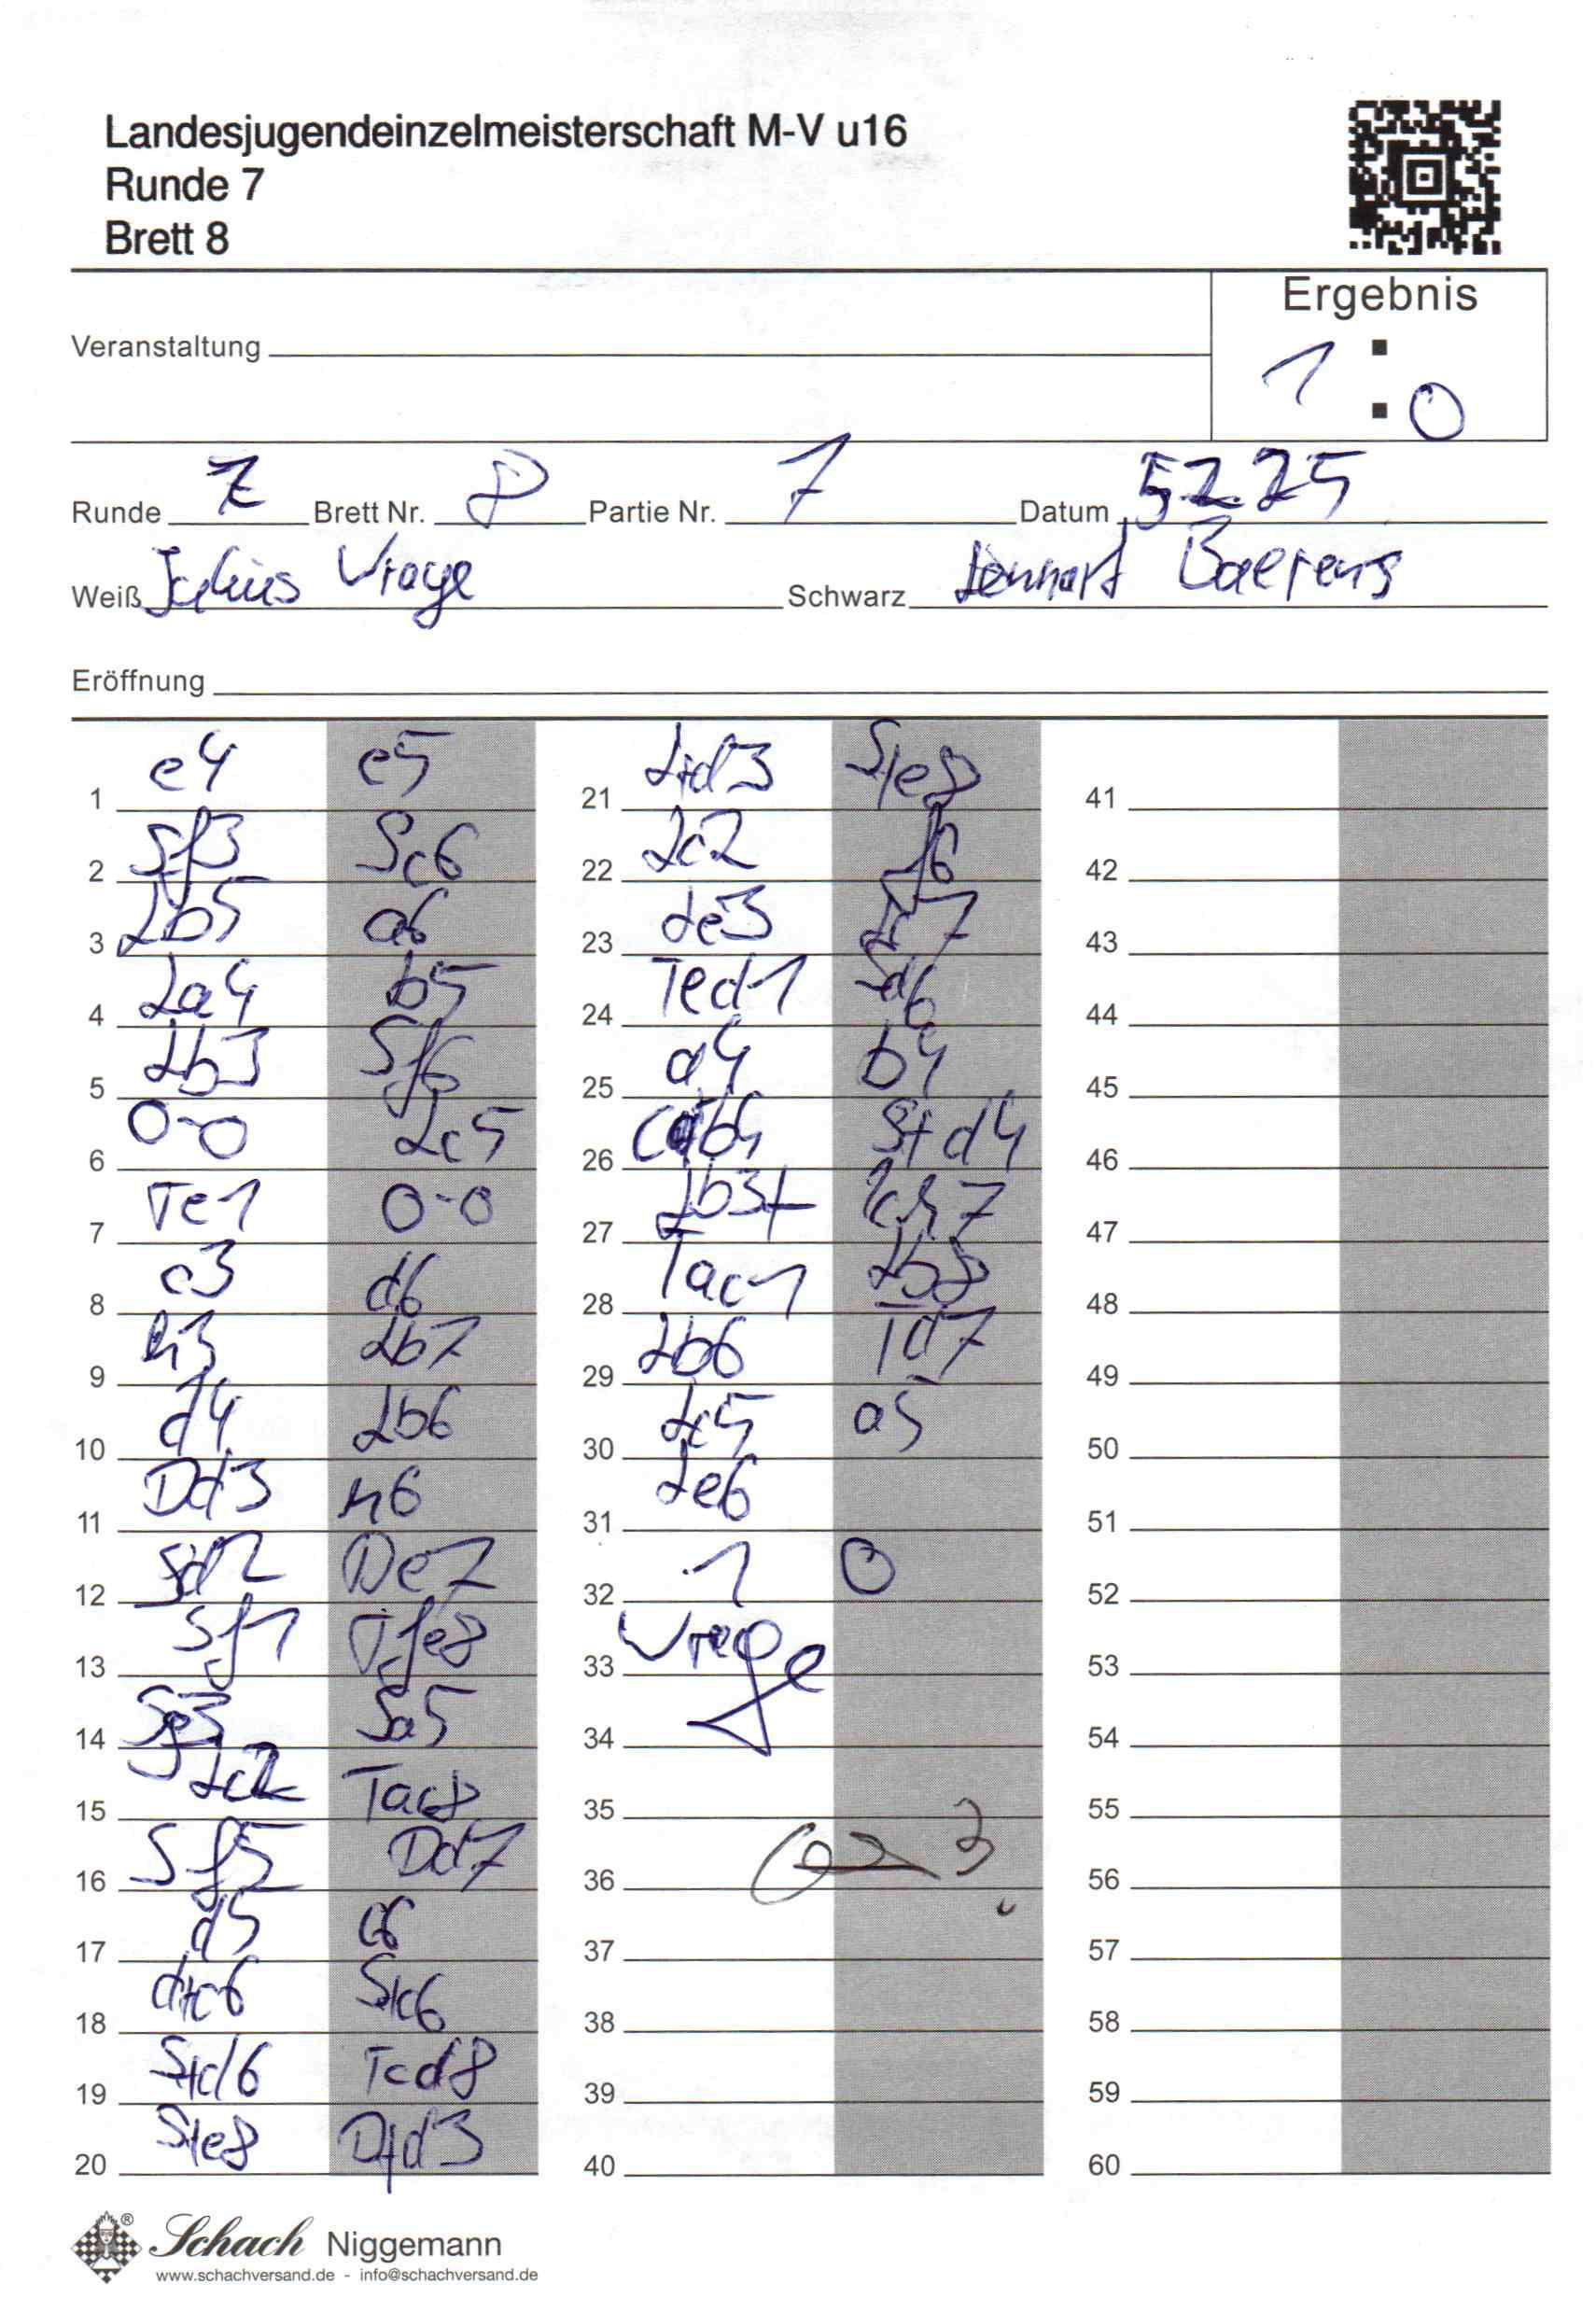 Landesjugendeinzelmeisterschaft M-V u16
Runde 7
Brett 8
Ergebnis
1 : 0
Veranstaltung
Runde 7 Brett Nr. 8 Partie Nr. 7 Datum 5.2.25
Weiß Julius Wrage Schwarz Lennart Baerens
Eröffnung
1 e4 e5
2 Sf3 Sc6
3 Lb5 a6
4 La4 b5
5 Lb3 Sf6
6 0-0 Lc5
7 Te1 0-0
8 c3 d6
9 h3 Lb7
10 d4 Lb6
11 Dd3 h6
12 Sd2 De7
13 Sf1 Tfe8
14 Sg3 Sa5
15 Lc2 Tac8
16 Sf5 Dd7
17 d5 c6
18 dxc6 Sxc6
19 Sxd6 Tcd8
20 Sxe8 Dxd3
21 Lxd3 Sxe8
22 Lc2 f6
23 Le3 Lc7
24 Ted1 Sd6
25 a4 b4
26 cxb4 Sxd4
27 Lb3+ Kh7
28 Tac1 Lb8
29 Lb6 Td7
30 Lc5 a5
31 Le6
32 1 0
33 Wrage
34
35
36
37
38
39
40
41
42
43
44
45
46
47
48
49
50
51
52
53
54
55
56
57
58
59
60
Schach Niggemann
www.schachversand.de - info@schachversand.de